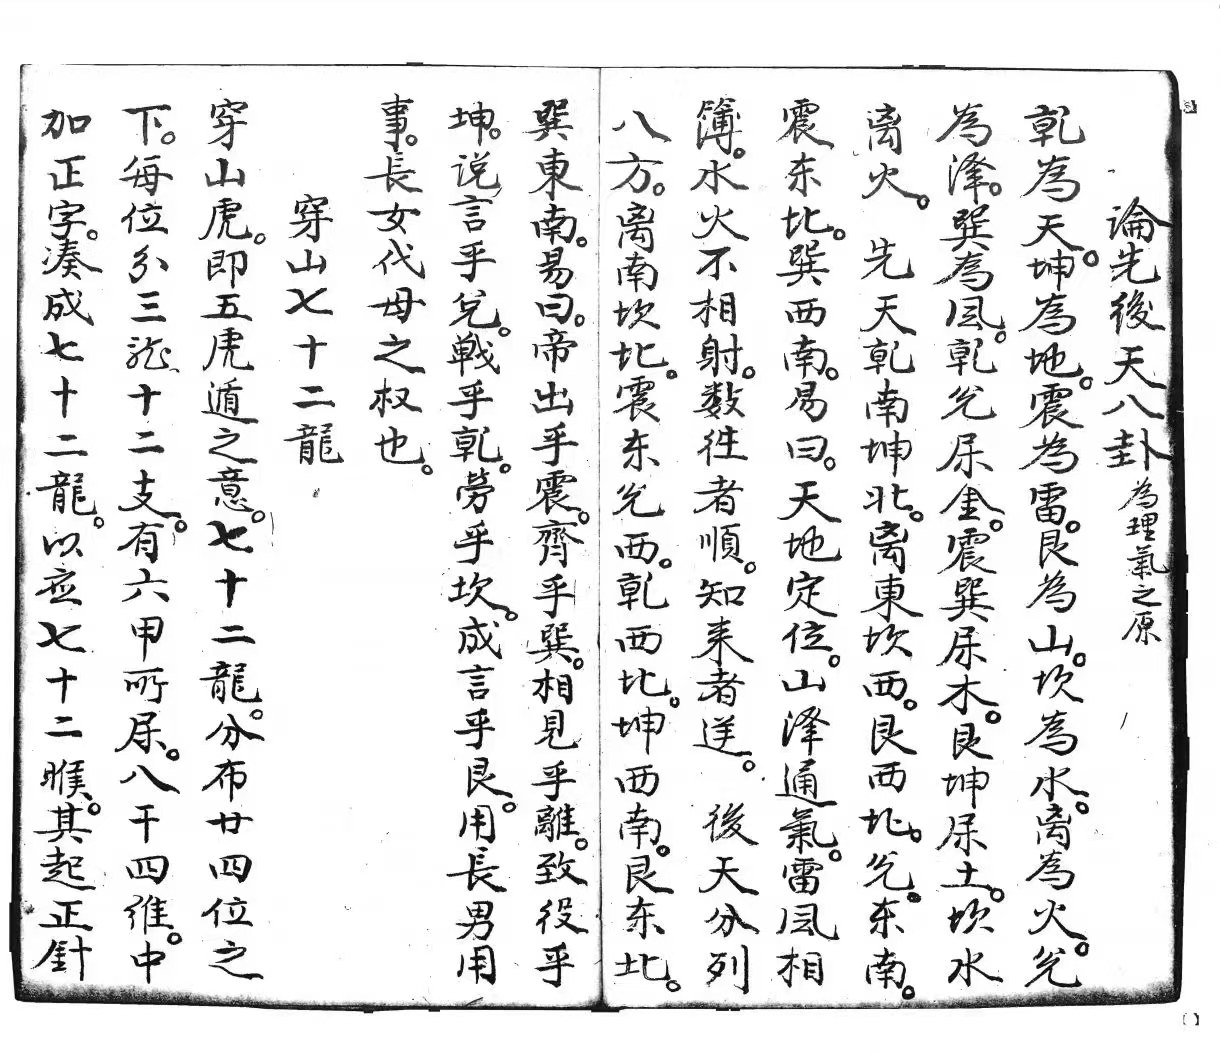 論先後天八卦為理氣之原
乾為天。坤為地。震為雷。艮為山。坎為水。离為火。兊
為泽。巽為风。乾兊属金。震巽属木。艮坤属土。坎水
离火。先天乾南坤北。离東坎西。艮西北。兊东南。
震东北。巽西南。易曰。天地定位。山泽通氣。雷风相
簿。水火不相射。数徃者順。知来者逆。後天分列
八方。离南坎北。震东兊西。乾西北。坤西南。艮东北。
巽東南。易曰。帝出乎震。齊乎巽。相見乎離。致役乎
坤。说言乎兊。戰乎乾。劳乎坎。成言乎艮。用長男用
事。長女代母之权也。
穿山七十二龍
穿山虎。即五虎遁之意。七十二龍。分布廿四位之
下。每位分三龙十二支。有六甲所属。八干四維。中
加正字。凑成七十二龍。以应七十二睺。其起正針